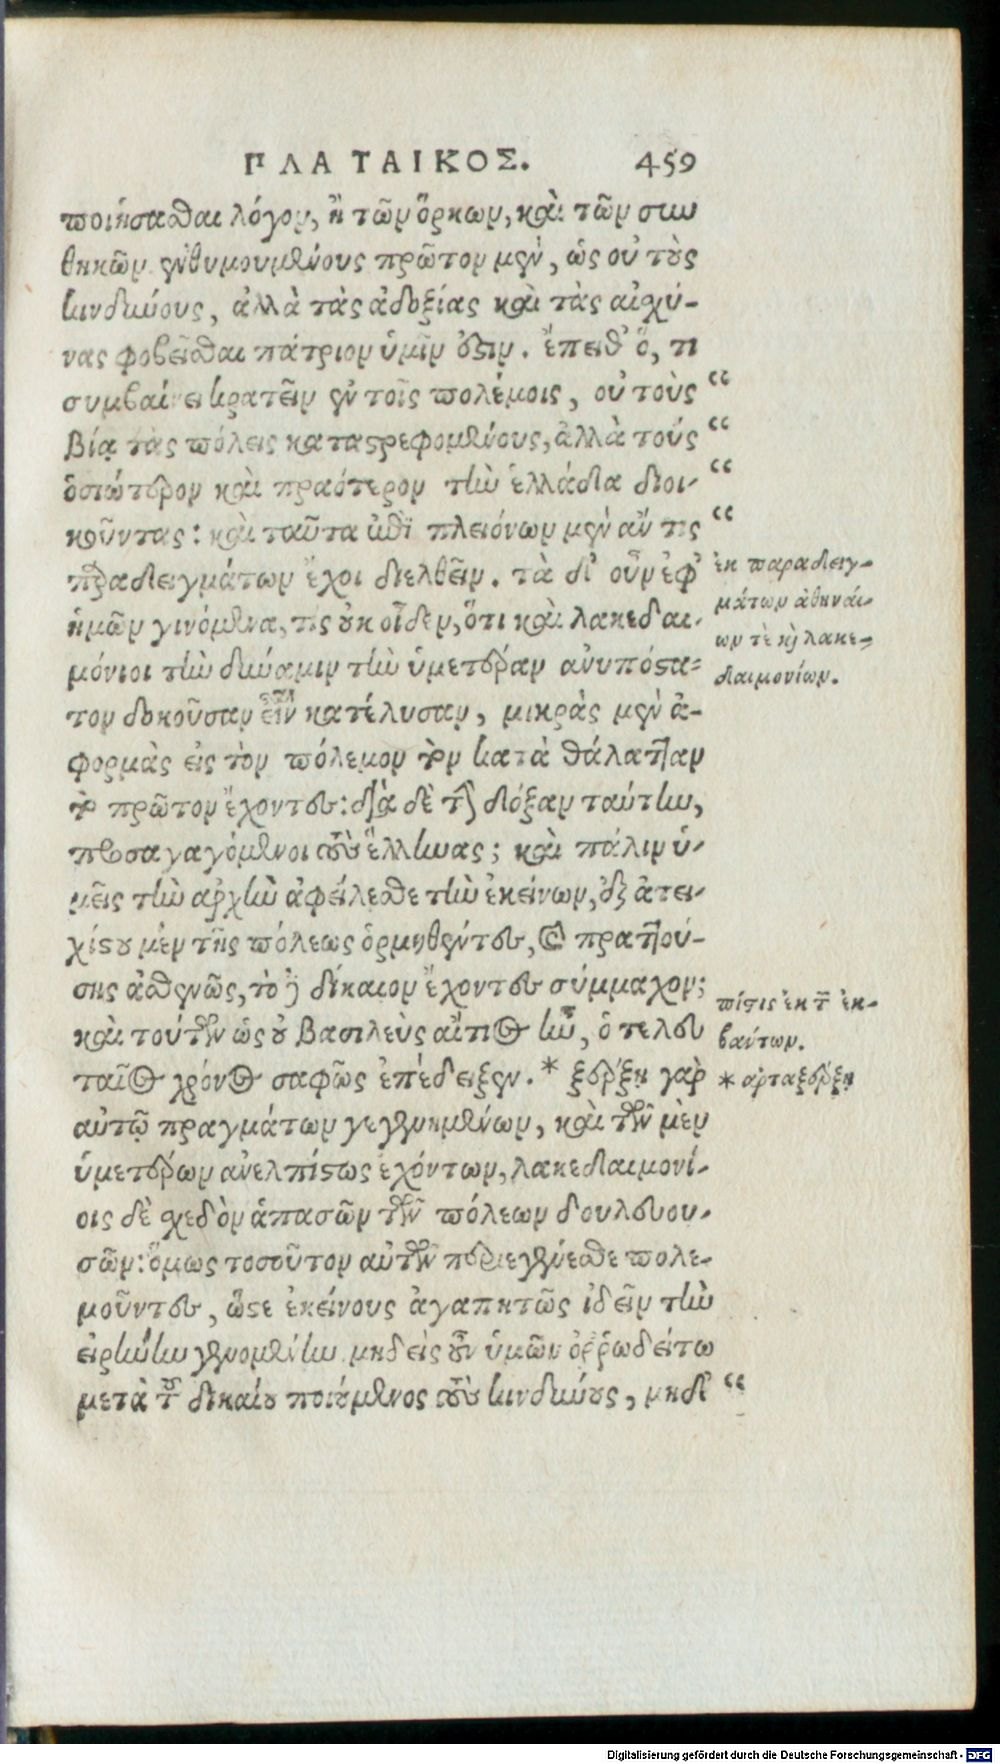 ΠΛΑΤΑΙΚΟΣ. 459
ποιήσαθαι λόγον, ἢ τῶν ὅρκων, καὶ τῶν συν
θηκῶν ἐνθυμουμένους πρῶτον μὲν, ὡς οὐ τοὺς
κινδύνους, ἀλλὰ τὰς ἀδοξίας καὶ τὰς αἰσχύ-
νας φοβεῖσθαι πάτριον ὑμῖν ὅστιν. ἔπειθ' ὅ, τι
συμβαίνει κρατεῖν ἐν τοῖς πολέμοις, οὐ τοὺς “
βίᾳ τὰς πόλεις καταστρεφομένους, ἀλλὰ τοὺς “
ὁσιώτερον καὶ πραότερον τὴν ἑλλάδα διοι- “
κοῦντας: καὶ ταῦτα ἐπὶ πλειόνων μὲν ἄν τις “
παραδειγμάτων ἔχοι διελθεῖν. τὰ δ' οὖν ἐφ'
ἡμῶν γινόμενα, τίς οὐκ οἶδεν, ὅτι καὶ λακεδαι-
μόνιοι τὴν δύναμιν τὴν ὑμετέραν ἀνυπόστα-
τον δοκοῦσαν εἶναι κατέλυσαν, μικρὰς μὲν ἀ-
φορμὰς εἰς τὸν πόλεμον τὸν κατὰ θάλατταν
τὸ πρῶτον ἔχοντες: διὰ δὲ τὴν δόξαν ταύτην,
προσαγαγόμενοι τοὺς ἕλληνας; καὶ πάλιν ὑ-
μεῖς τὴν ἀρχὴν ἀφείλεσθε τὴν ἐκείνων, ἐξ ἀτει-
χίστου μὲν τῆς πόλεως ὁρμηθέντες, καὶ πραττού-
σης ἀσθενῶς, τὸ δὲ δίκαιον ἔχοντες σύμμαχον;
καὶ τούτων ὡς οὐ βασιλεὺς αἴτιος ἦν, ὁ τελευ
ταῖος χρόνος σαφῶς ἐπέδειξεν. * ξέρξῃ γὰρ
αὐτῷ πραγμάτων γεγενημένων, καὶ τῶν μὲν
ὑμετέρων ἀνελπίστως ἐχόντων, λακεδαιμονί-
οις δὲ σχεδὸν ἁπασῶν τῶν πόλεων δουλευου-
σῶν: ὅμως τοσοῦτον αὐτῶν περιεγένεσθε πολε-
μοῦντες, ὥστε ἐκείνους ἀγαπητῶς ἰδεῖν τὴν
εἰρήνην γενομένην. μηδεὶς οὖν ὑμῶν ὀῤῥωδείτω
μετὰ τοῦ δικαίου ποιούμενος τοὺς κινδύνους, μηδ' “
ἐκ παραδειγ-
μάτων ἀθηναί-
ων τὲ καὶ λακε-
δαιμονίων.
πίστις ἐκ τῶν ἐκ-
βάντων.
* ἀρταξέρξῃ
Digitalisierung gefördert durch die Deutsche Forschungsgemeinschaft - DFG